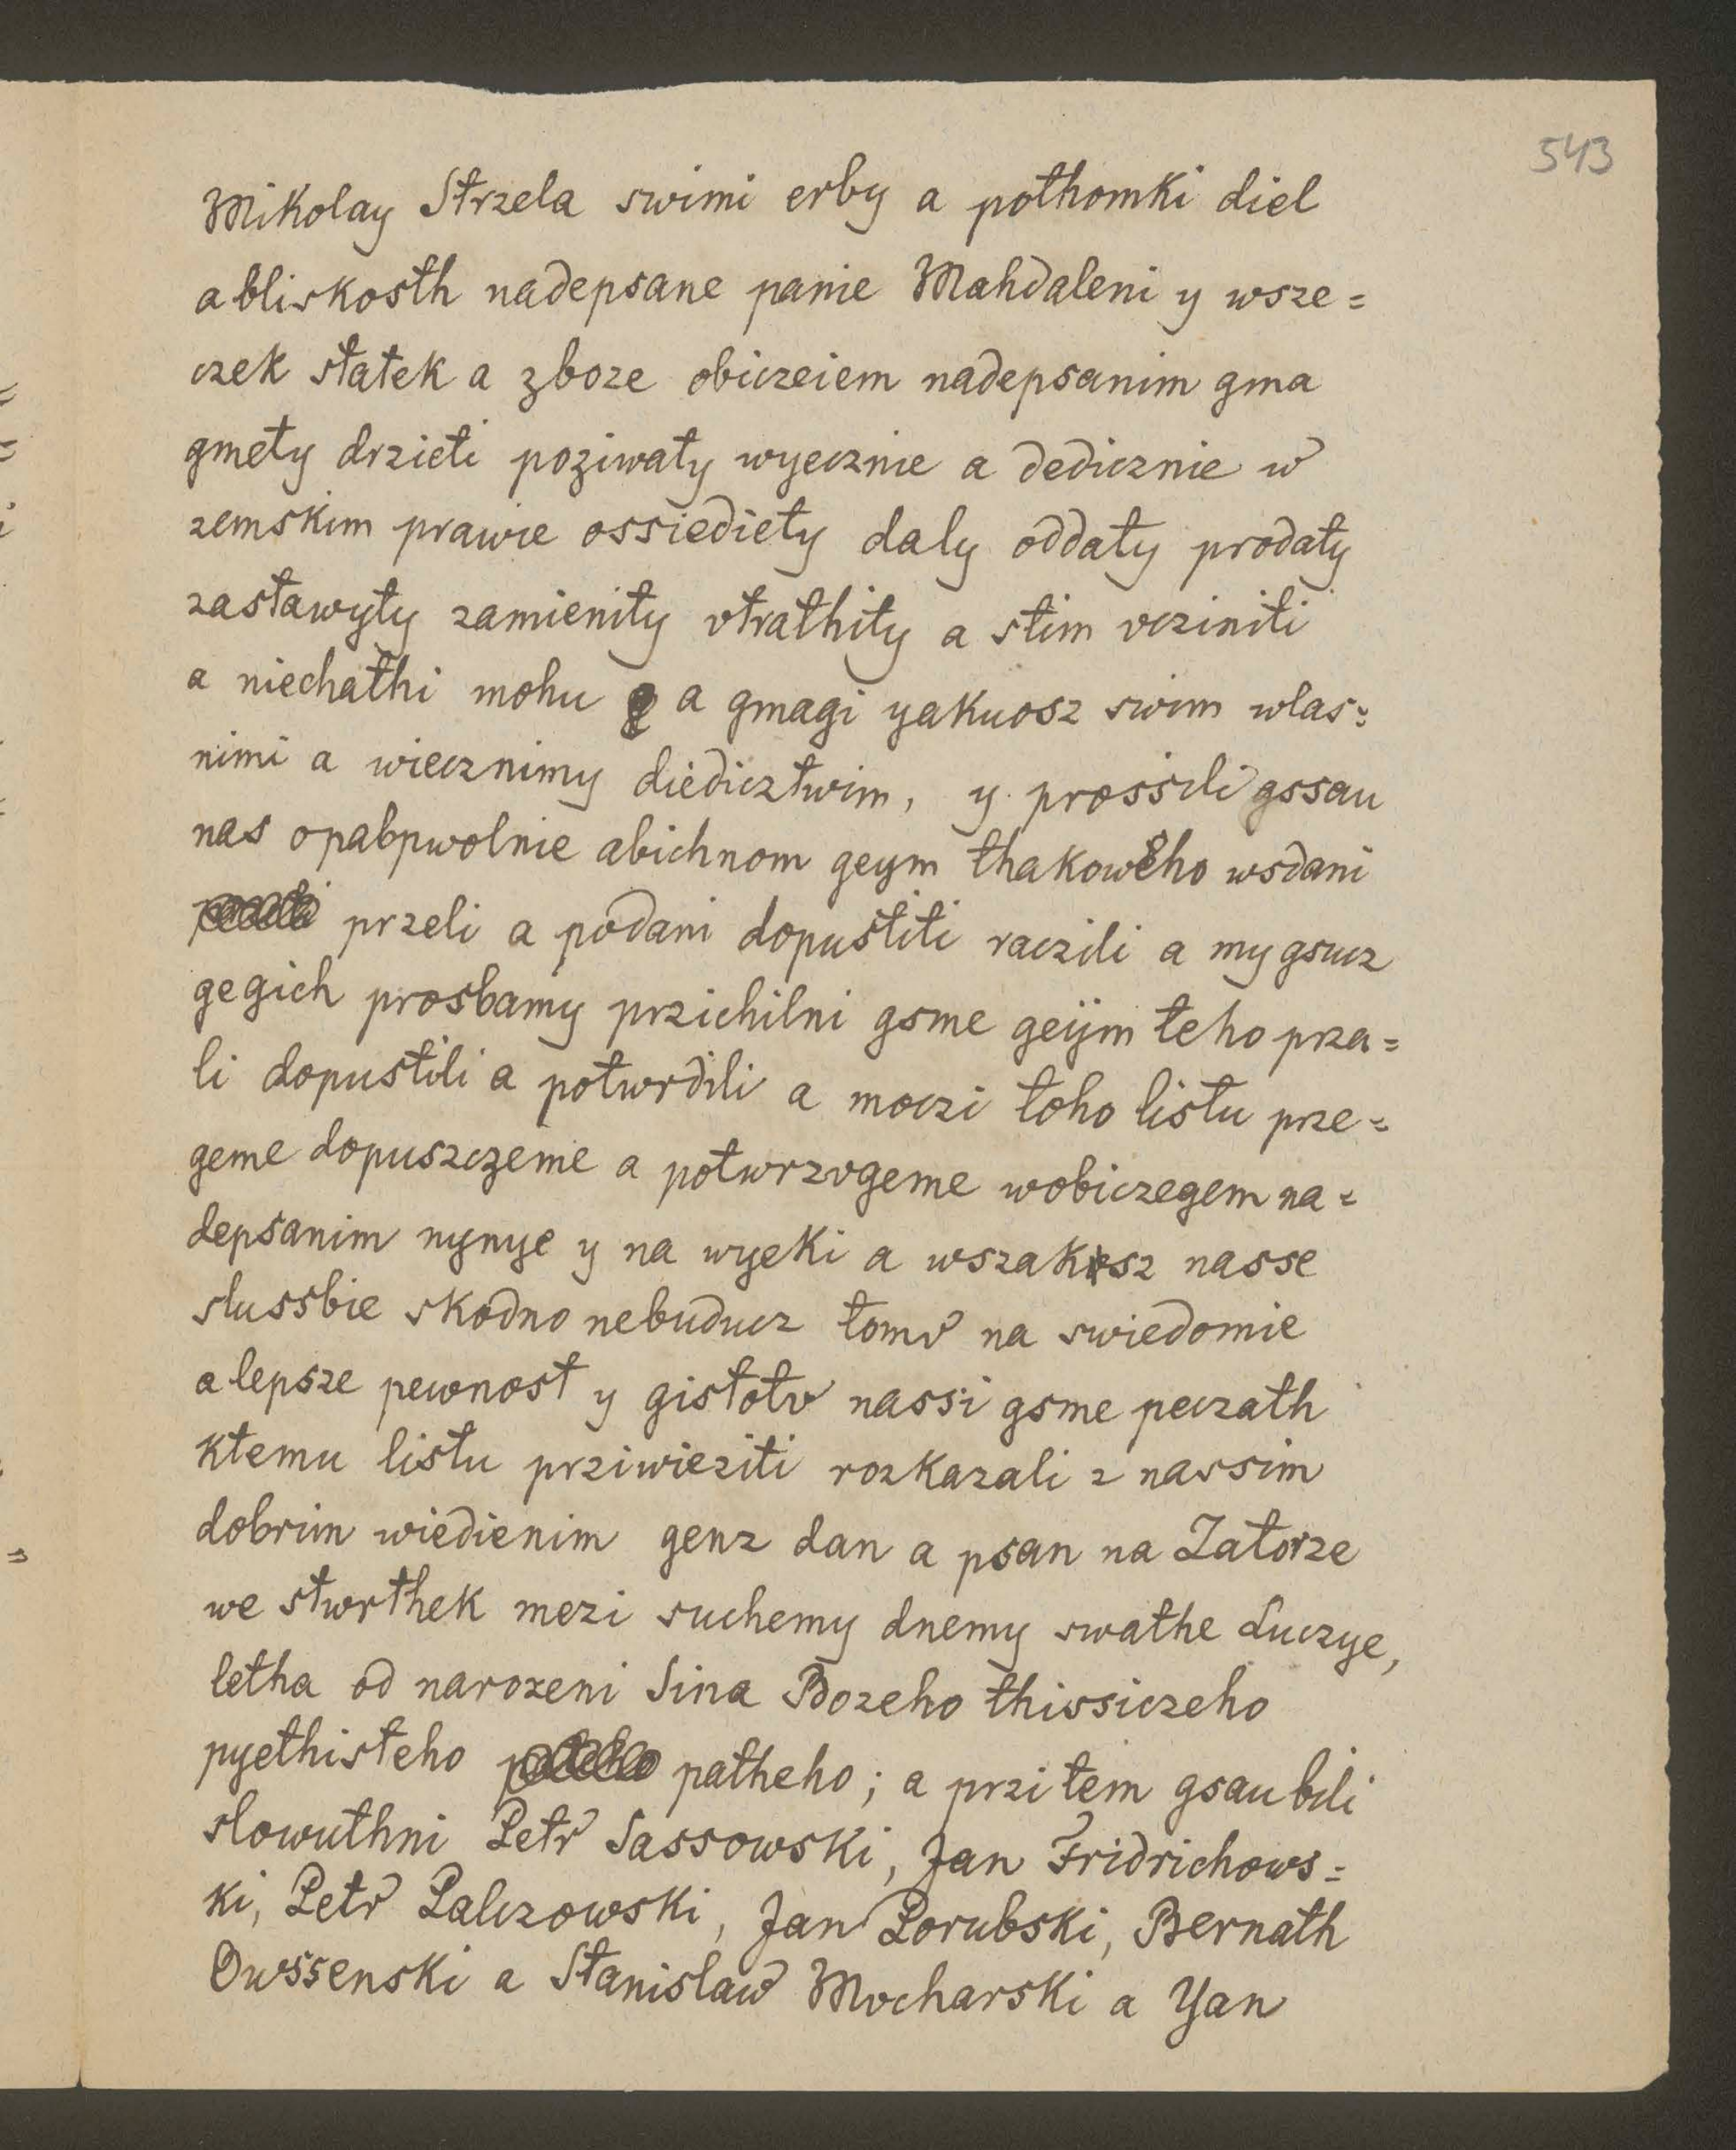 543
Mikolay Strzela swimi erby a pothomki diel
a bliskosth nadepsane panie Mahdaleni y wsze=
czek statek a zboze obiczeiem nadepsanim gma
gmety drzieti poziwaty wyecznie a dedicznie w
zemskim prawie ossiediety daly oddaty prodaty
zastawyty zamienity vtrathity a stim vcziniti
a niechathi mohu a gmagi yakuosz swim wlas=
nimi a wiecznimy diedicztwim, y prossili gssau
nas opabpwolnie abichnom geym thakoweho wsdani
przeli a podani dopustiti raczili a my gsucz
gegich prosbamy przichilni gsme geijm teho prza=
li dopustili a potwrdili a moczi toho listu prze=
geme dopuszczeme a potwrzvgeme wobiczegem na=
depsanim nynye y na wyeki a wszakosz nasse
slussbie skodno nebuducz tomv na swiedomie
a lepsze pewnost y gistotv nassi gsme peczath
ktemu listu prziwieziti rozkazali z nassim
dobrim wiedienim genz dan a psan na Zatorze
we stwrthek mezi suchemy dnemy swathe Luczye,
letha od narozeni Sina Bozeho thissiczeho
pyethisteho patheho; a przi tem gsau bili
slowuthni Petr Sassowski, Jan Fridrichows=
ki, Petr Palczowski, Jan Porubski, Bernath
Owssenski a Stanislaw Mvcharski a Yan